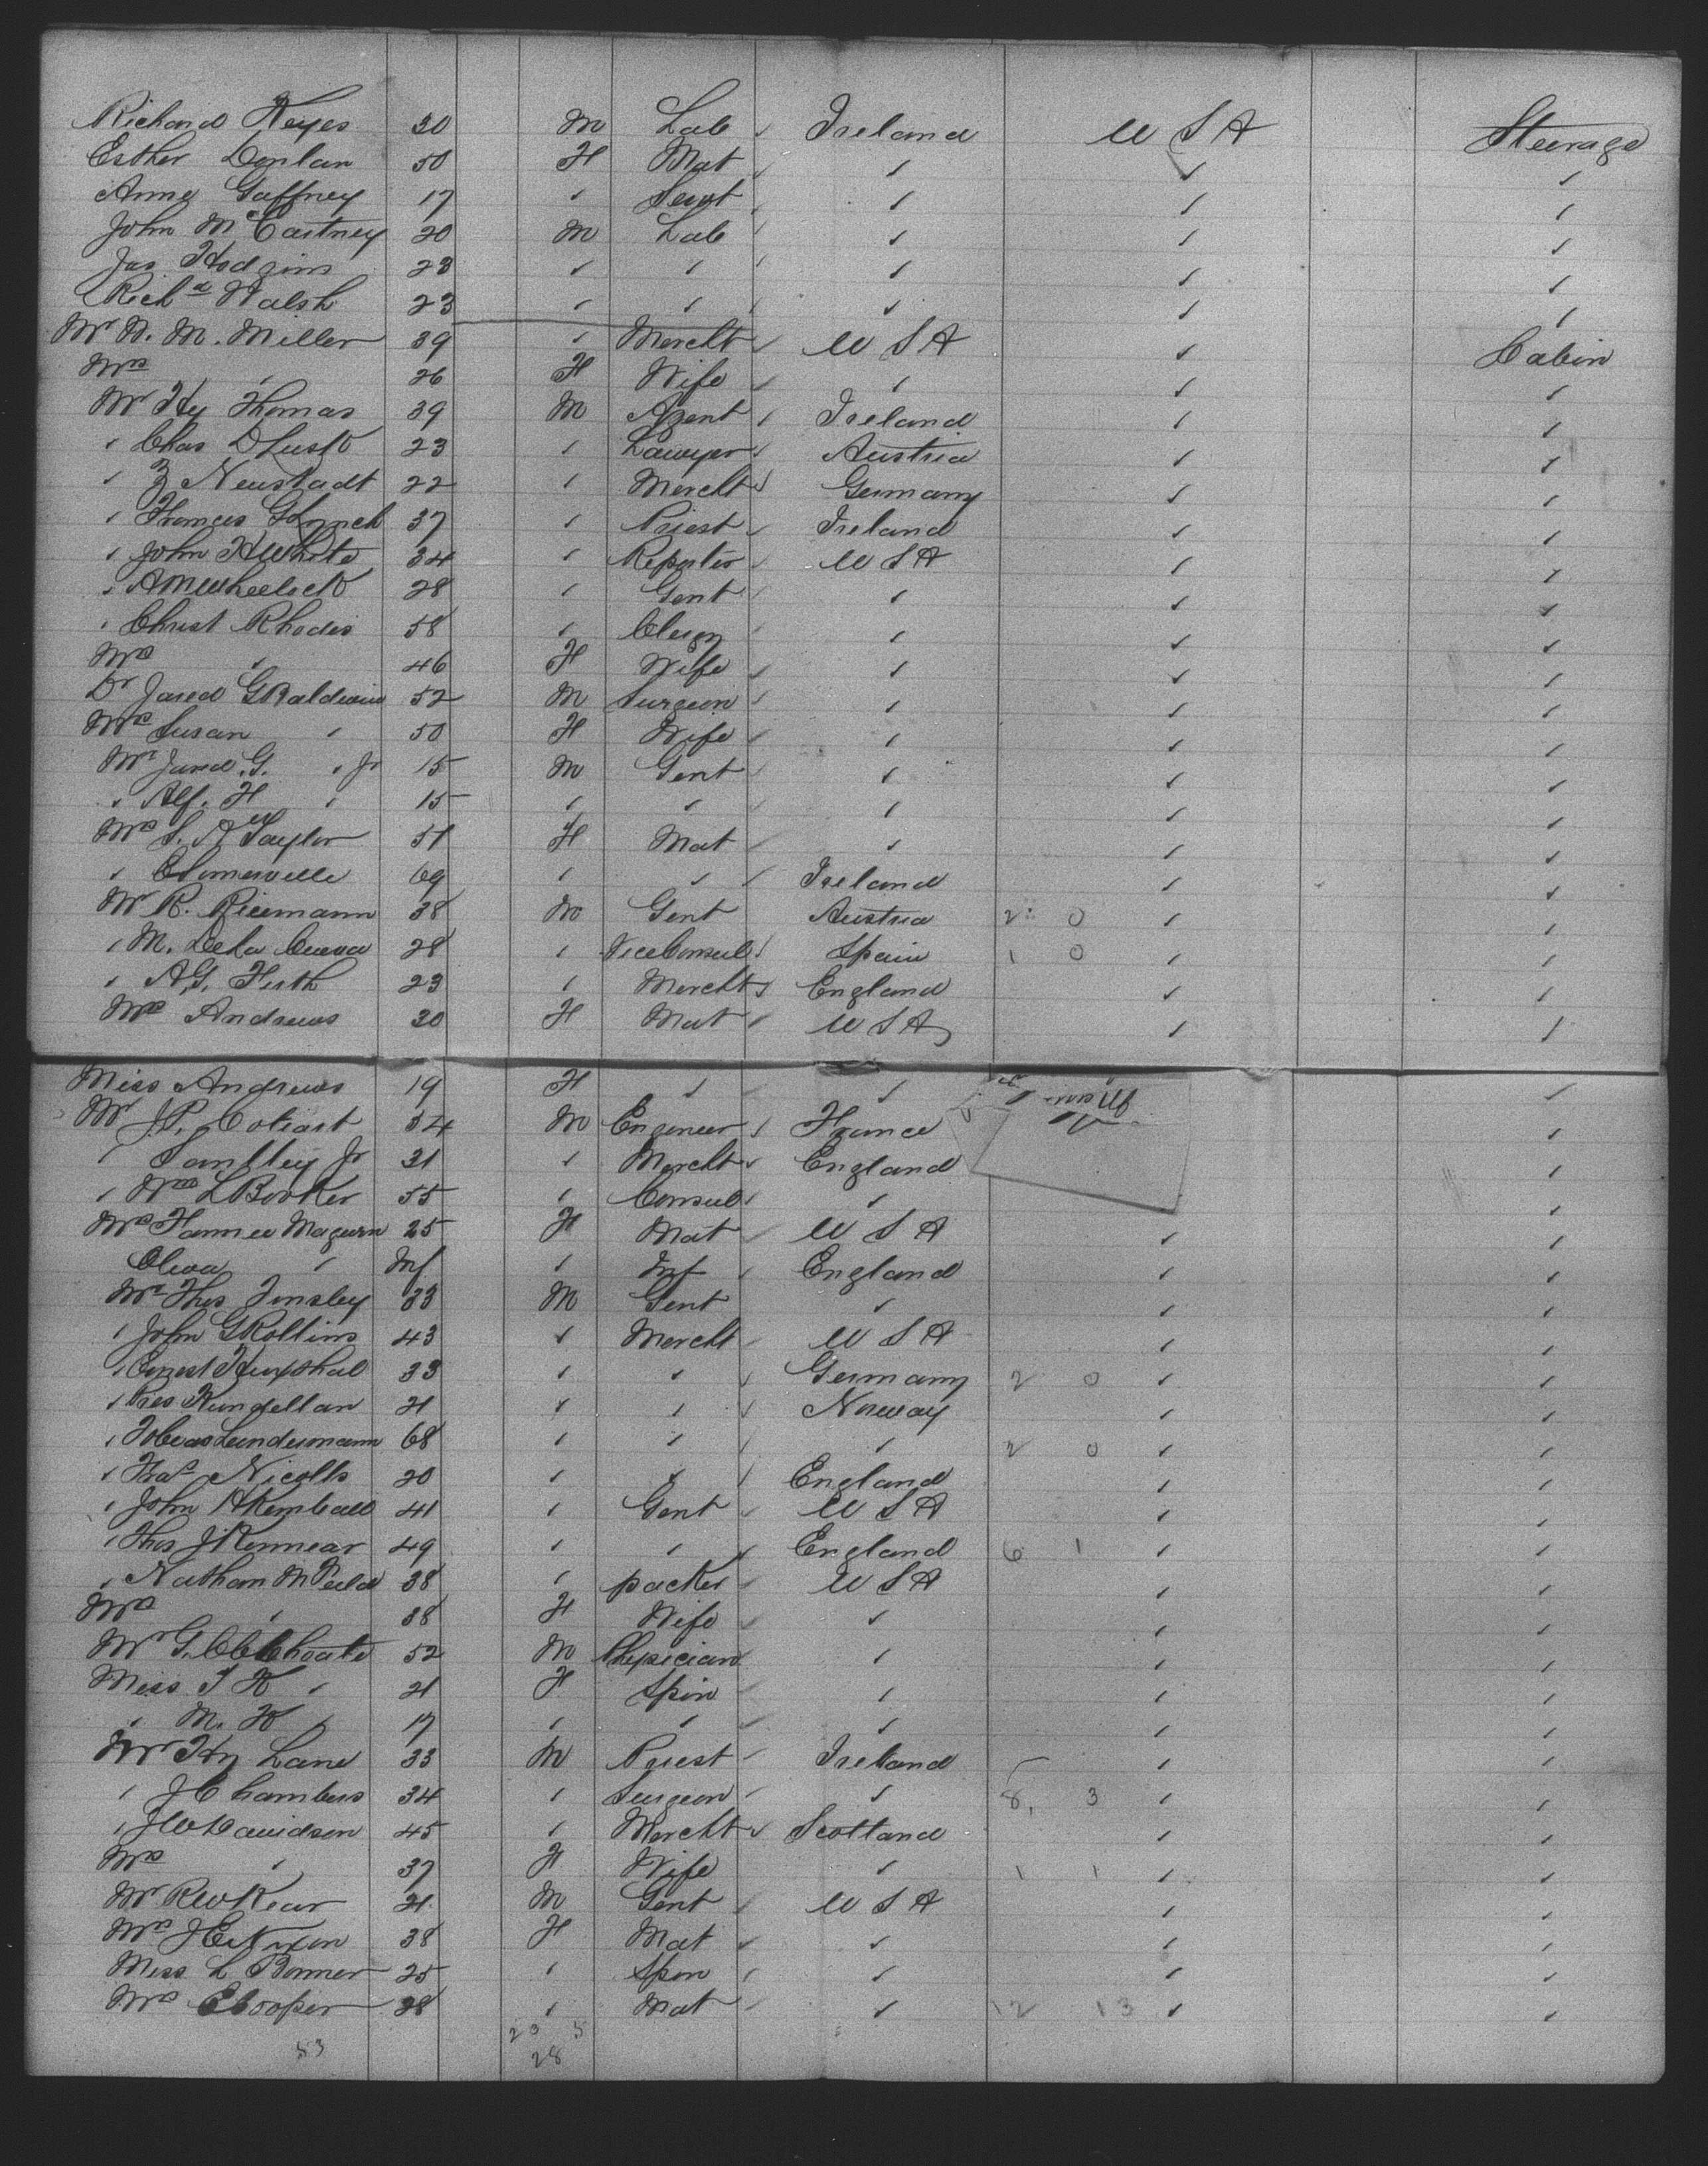 Richard Keyes 30 M Lab Ireland U S A Steerage
Esther Donlan 50 F Mat " " "
Anne Gaffney 17 " Servt " " "
John McCartney 20 M Lab " " "
Jas Hodgins 23 " " " " "
Richd Walsh 23 " " " " "
Mr W. M. Miller 39 " Mercht U S A " Cabin
Mrs " 26 F Wife " " "
Mr Hy Thomas 39 M Agent Ireland " "
" Chas D Lusk 23 " Lawyer Austria " "
" Z Neustadt 22 " Mercht Germany " "
" Thomas G Lynch 37 " Priest Ireland " "
" John H White 34 " Reporter U S A " "
" A M Wheelock 28 " Gent " " "
" Christ Rhodes 58 " Clergy " " "
Mrs " 46 F Wife " " "
Dr Jared G Baldwin 52 M Surgeon " " "
Mrs Susan " 50 F Wife " " "
Mr Jared G. " Jr 15 M Gent " " "
" Alf. H " 15 " " " " "
Mrs S. A Taylor 51 F Mat " " "
" C Somerville 69 " " Ireland " "
Mr R. Riemann 38 M Gent Austria 2 0 " "
" M. De la Cueva 28 " Vice Consul Spain 1 0 " "
" A G. Firth 23 " Mercht England " "
Mrs Andrews 30 F Mat U S A " "
Miss Andrews 19 F " " "
Mr J. P. 34 M Engineer France "
" Santley Jr 31 " Mercht England "
" Wm L Booker 55 " Consul " "
Mrs Fannie Magurn 25 F Mat U S A " "
Oliva " Inf " Inf England " "
Mr Thos Tinsley 33 M Gent " " "
" John G Rollins 43 " Mercht U S A " "
" Ernest 33 " " Germany 2 0 " "
" 21 " " Norway " "
" Tobias Lindermann 68 " " " 2 0 " "
" Fras Nicolls 20 " " England " "
" John A Kemball 41 " Gent U S A " "
" Thos J Kinnear 49 " " England 6 1 " "
" Nathan M 38 " packer U S A " "
Mrs " 38 F Wife " " "
Mr G. C Choate 52 M Physician " " "
Miss J K " 21 F Spin " " "
" M. K " 17 " " " " "
Mr Hy Lane 33 M Priest Ireland " "
" J Chambers 34 " Surgeon " 8 3 " "
" J W Davidson 45 " Mercht Scotland " "
Mrs " 37 F Wife " 1 1 " "
Mr R W Kear 21 M Gent U S A " "
Mrs J E Nixon 38 F Mat " " "
Miss L Bonner 25 " Spin " " "
Mrs E Cooper 28 " Mat " 12 13 " "
53 23 5
28